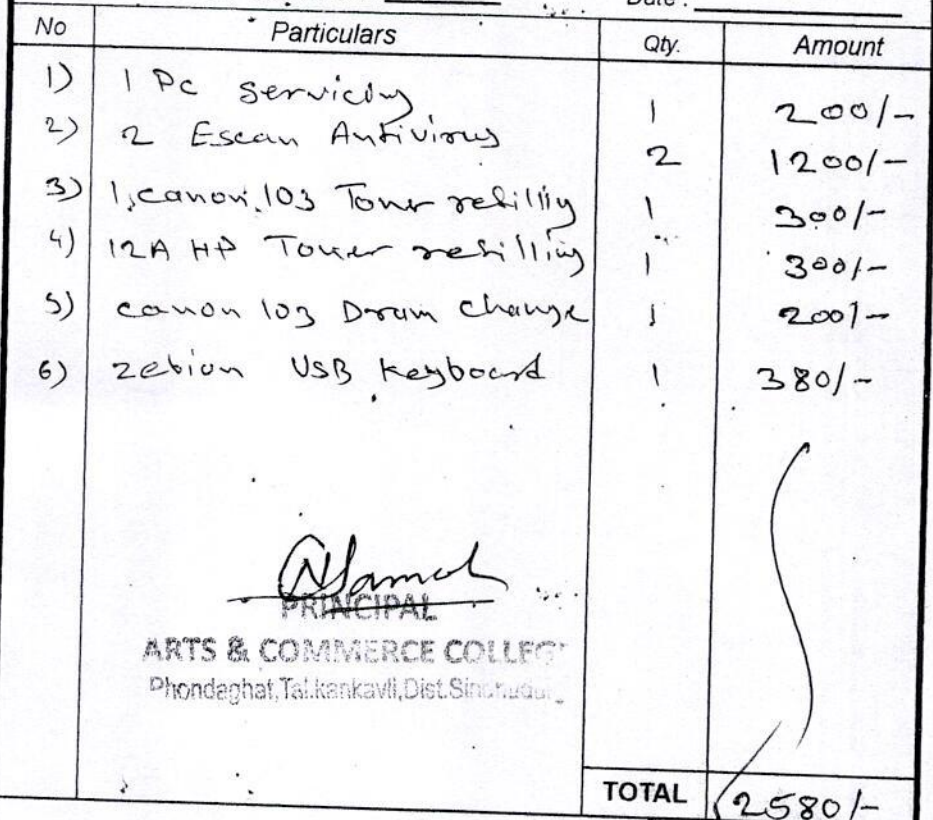 Date :
No Particulars Qty. Amount
1) 1 Pc servicing 1 200/-
2) 2 Escan Antivirus 2 1200/-
3) 1, canon, 103 Toner refilling 1 300/-
4) 12A HP Toner refilling 1 300/-
5) canon 103 Drum Change 1 200/-
6) Zebion USB Keyboard 1 380/-
PRINCIPAL
ARTS & COMMERCE COLLEGE
Phondaghat, Tal.kankavli, Dist.Sindhudurg
TOTAL 2580/-